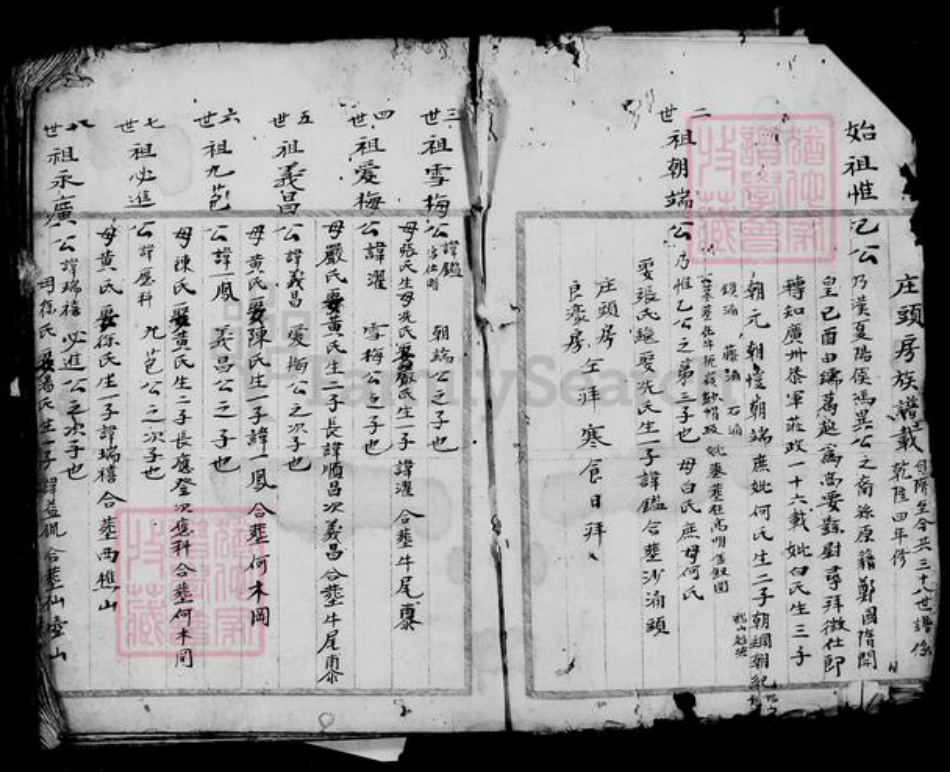 庄頭房族譜載 自隋至今共三十八世譜係 乾隆四年修
始祖惟已公 乃漢夏陽侯馮異公之裔孫原籍鄭國隋開
皇己酉由孺萬起為高要縣尉尋拜徵仕郎
轉知廣州叅軍莊政一十六載妣白氏生三子
朝元朝愷朝端庶妣何氏生二子朝綱朝紀
二世祖朝端公 乃惟已公之第三子也 母白氏庶母何氏
娶張氏繼娶冼氏生一子諱鑑合塟沙涌頭
庄頭房
良濠房 仝拜寒食日拜
三世祖雪梅公 諱鑑 朝端公之子也
母張氏生母冼氏娶嚴氏生一子諱濯 合塟牛尾
四世祖愛梅公 諱濯 雪梅公之子也
母嚴氏娶黃氏生二子長諱順昌次義昌合塟牛尾
五世祖義昌公 諱義昌 愛梅公之次子也
母黃氏娶陳氏生一子諱一鳳 合塟何木岡
六世祖九苞公 諱一鳳 義昌公之子也
母陳氏娶黃氏生二子長應登次應科合塟何木岡
七世祖必進公 諱應科 九苞公之次子也
母黃氏娶徐氏生一子諱瑞禧 合塟西樵山
八世祖永廣公 諱瑞禧 必進公之次子也
母徐氏娶潘氏生一子